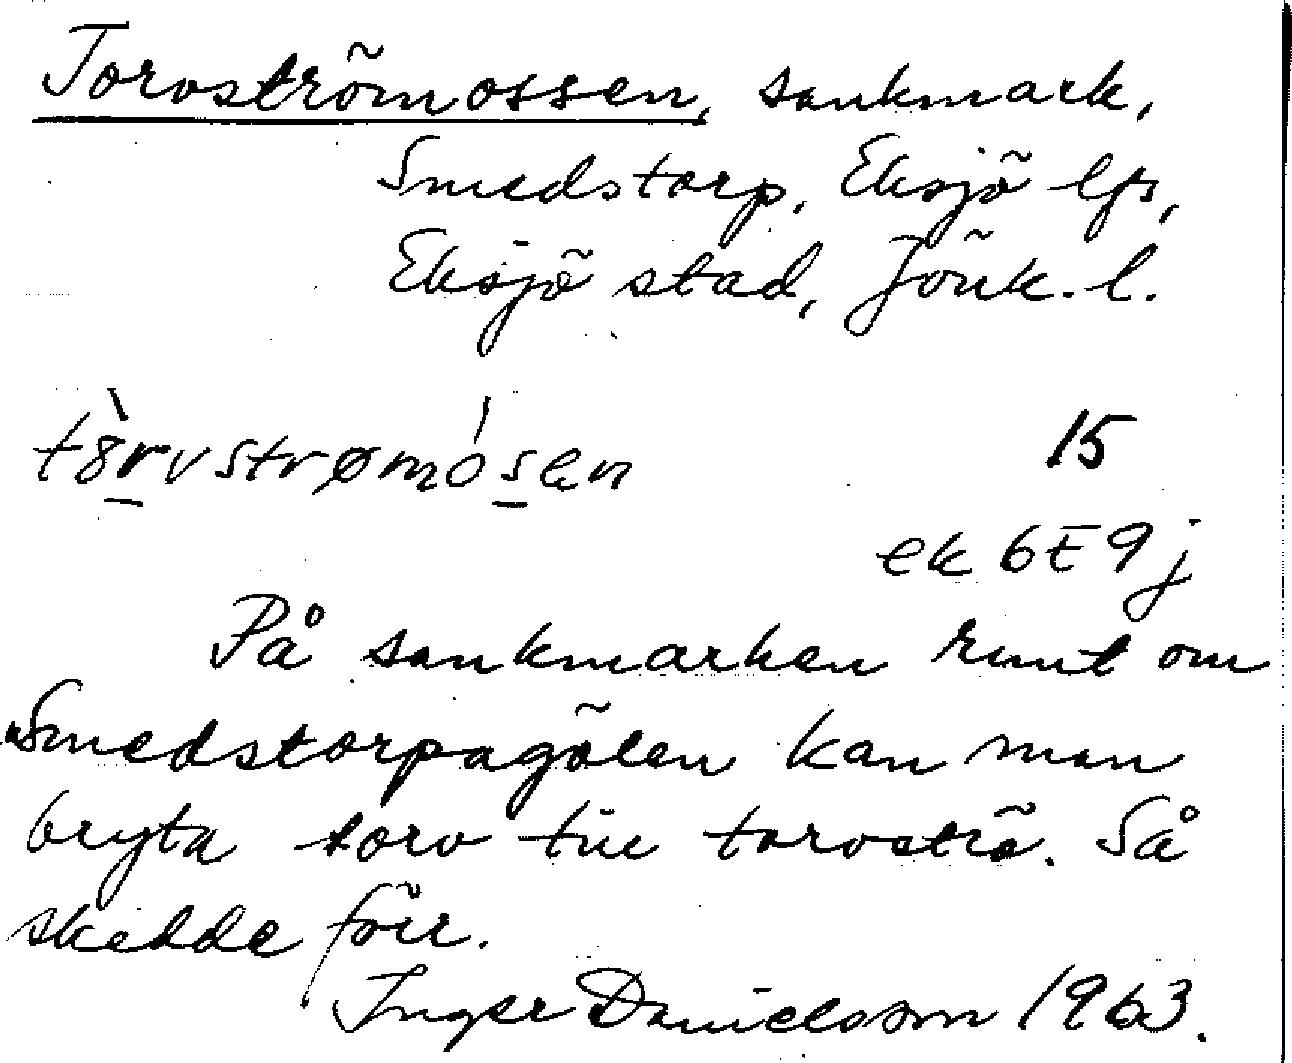 Torvströmossen, sankmark,
Smedstorp, Eksjö lfs,
Eksjö stad, Jönk. l.
tȣ̀rvstrømósen
15
ek 6E9j
På sankmarken runt om
Smedstorpagölen kan man
bryta torv till torvströ. Så
skedde förr.
Inger Danielsson 1963.